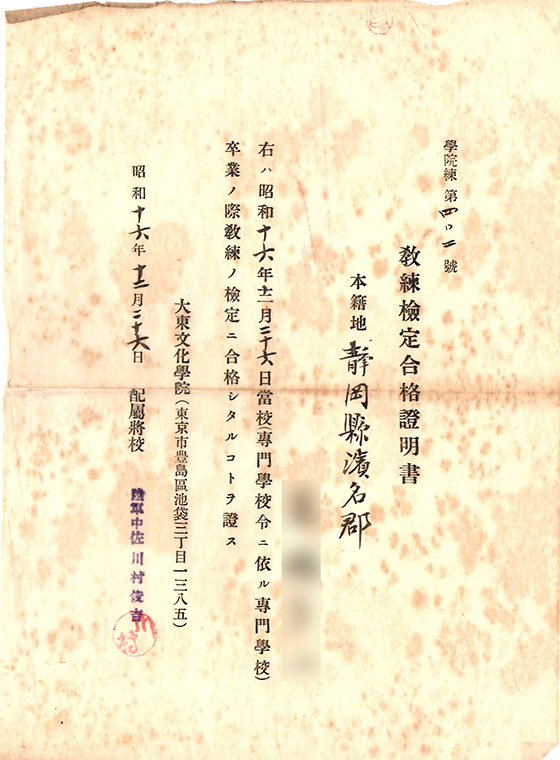 學院練第四〇二號
教練檢定合格證明書
本籍地 靜岡縣濱名郡
右ハ昭和十六年十二月二十六日當校(專門學校令ニ依ル專門學校)
卒業ノ際教練ノ檢定ニ合格シタルコトヲ證ス
大東文化學院(東京市豊島區池袋三丁目一三八五)
昭和十六年十二月二十六日 配屬將校
陸軍中佐川村俊吉
川村